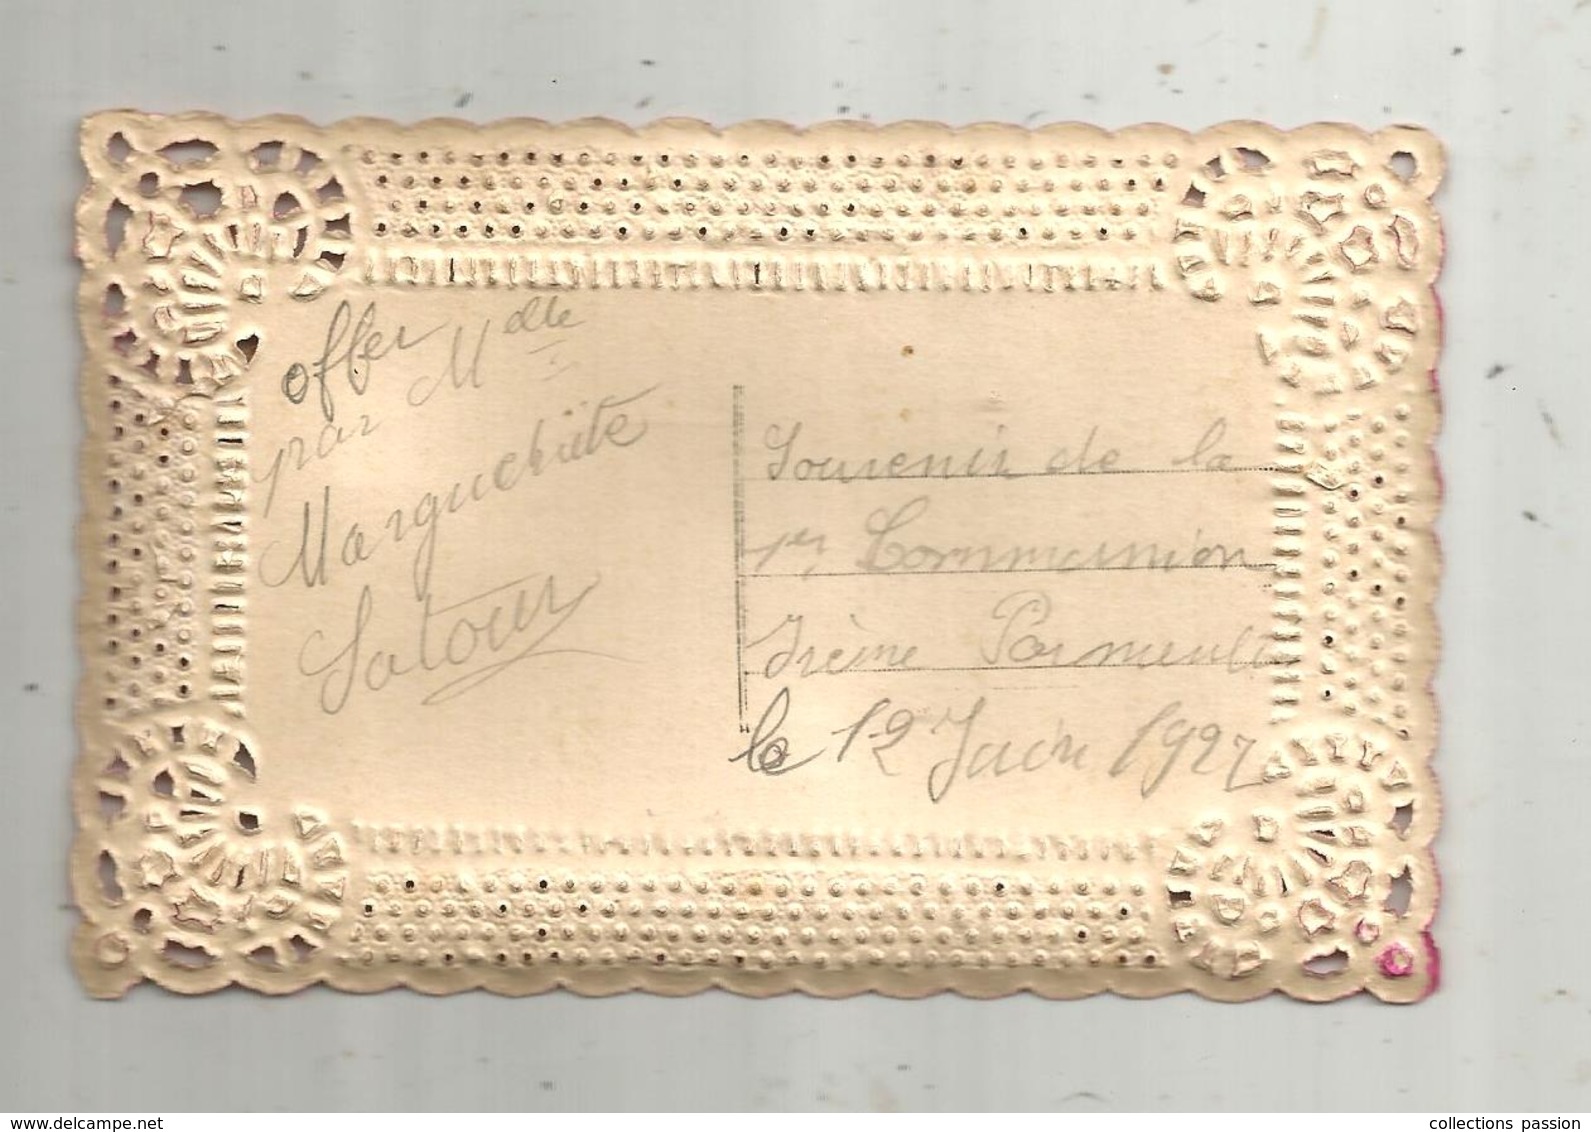 offer
par Melle
Marguerite
Latour
Souvenir de la
1er Communion
Irène
le 12 Juin 1927
www.delcampe.net
collections passion